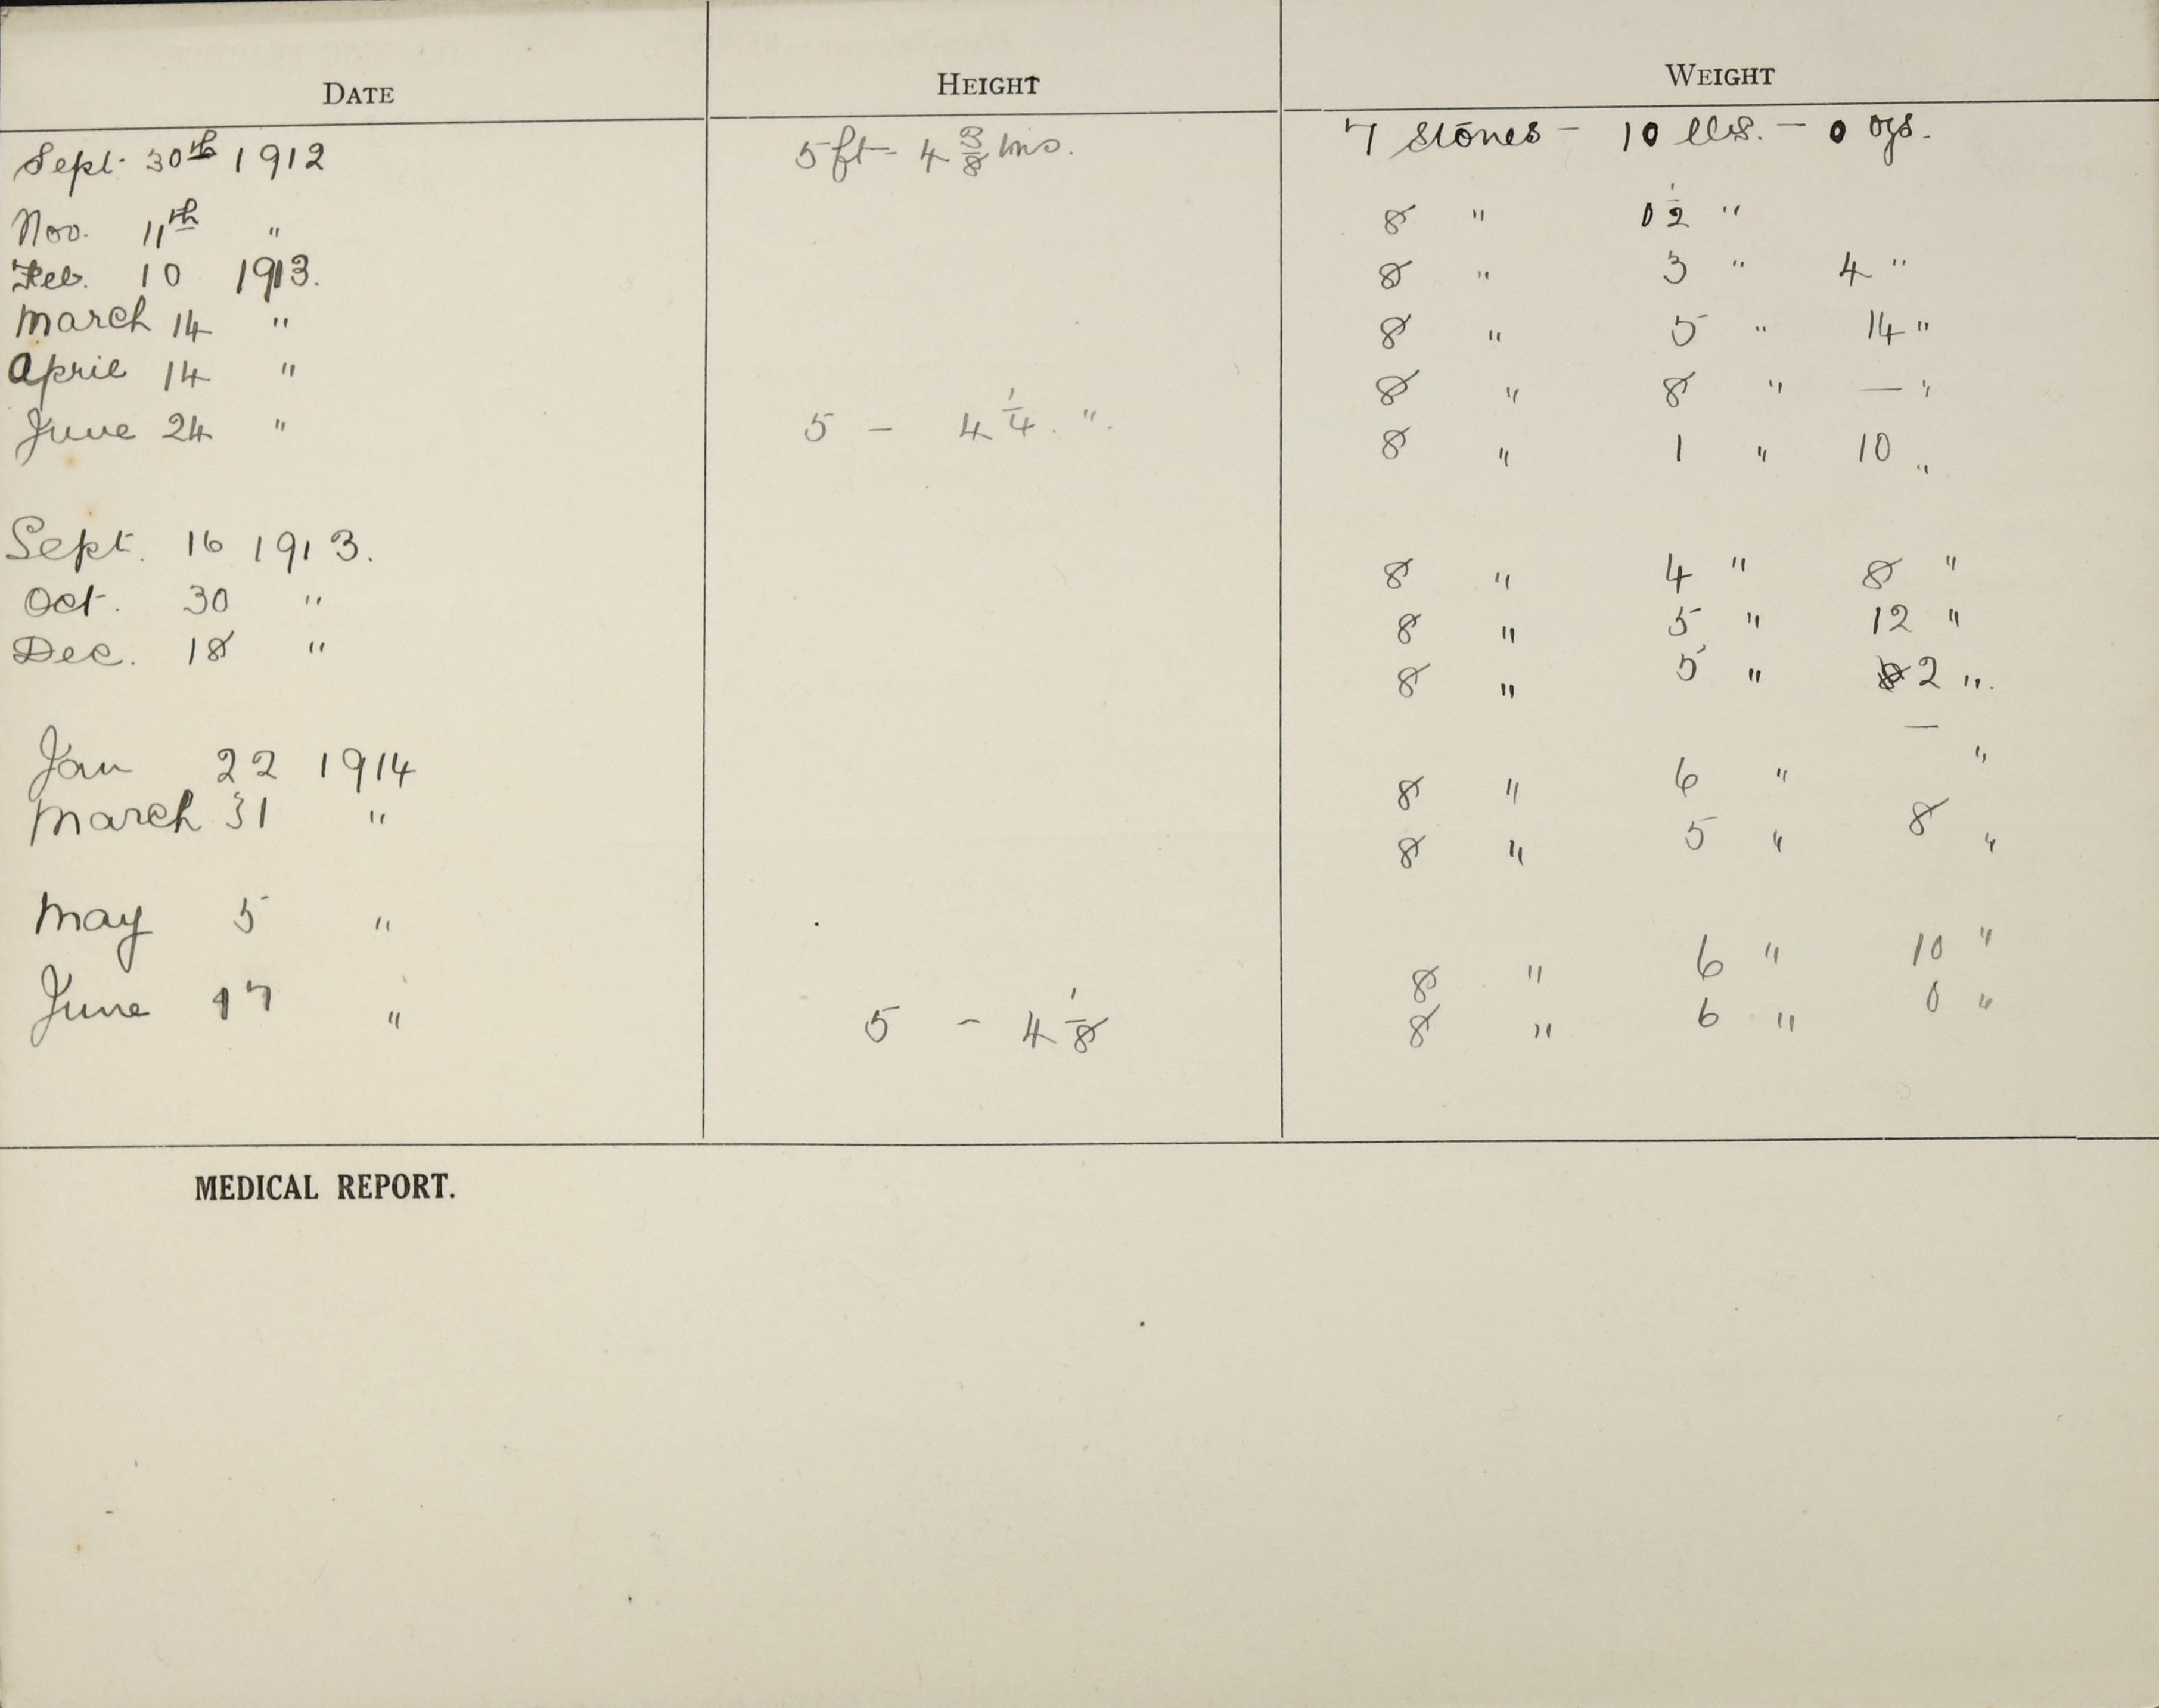 DATE HEIGHT WEIGHT
Sept. 30th 1912 5 ft - 4 3/8 ins. 7 stones - 10 lbs. - 0 ozs.
Nov. 11th " 8 " 0 1/2 "
Feb. 10 1913. 8 " 3 " 4 "
March 14 " 8 " 5 " 14 "
April 14 " 8 " 8 " — "
June 24 " 5 - 4 1/4 . ". 8 " 1 " 10 "
Sept. 16 1913. 8 " 4 " 8 "
Oct. 30 " 8 " 5 " 12 "
Dec. 18 " 8 " 5 " 2 ".
Jan 22 1914 8 " 6 " — "
March 31 " 8 " 5 " 8 "
May 5 " 8 " 6 " 10 "
June 17 " 5 - 4 1/8 8 " 6 " 0 "
MEDICAL REPORT.